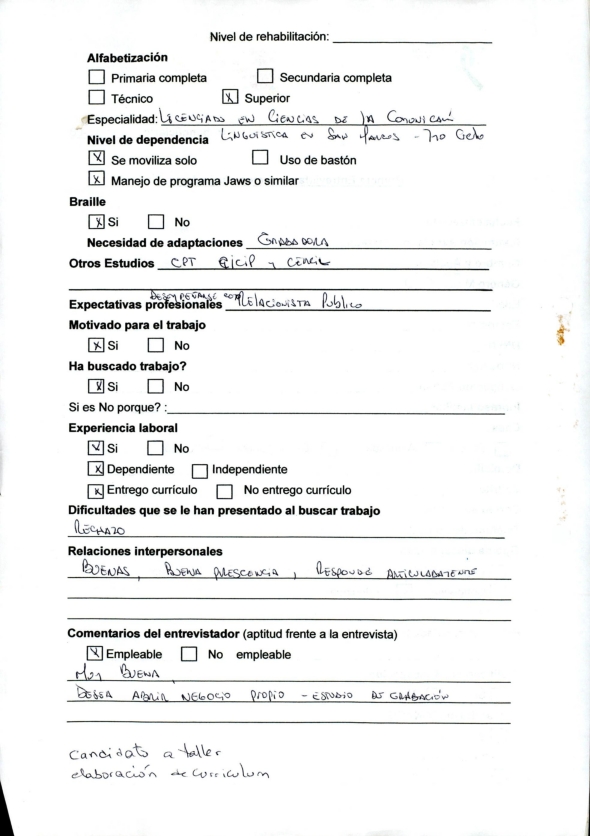 Nivel de rehabilitación:
Alfabetización
Primaria completa Secundaria completa
Técnico X Superior
Especialidad: LICENCIADO EN CIENCIAS DE LA
Nivel de dependencia LINGUISTICA EN SAN MARCOS - 7no Ciclo
X Se moviliza solo Uso de bastón
X Manejo de programa Jaws o similar
Braille
X Si No
Necesidad de adaptaciones GRABADORA
Otros Estudios CPT y CERCIL
DESEMPEÑARSE COMO
Expectativas profesionales RELACIONISTA PUBLICO
Motivado para el trabajo
X Si No
Ha buscado trabajo?
X Si No
Si es No porque? :
Experiencia laboral
X Si No
X Dependiente Independiente
X Entrego currículo No entrego currículo
Dificultades que se le han presentado al buscar trabajo
RECHAZO
Relaciones interpersonales
BUENAS, BUENA PRESCENCIA, RESPONDE ARTICULADAMENTE
Comentarios del entrevistador (aptitud frente a la entrevista)
X Empleable No empleable
Muy BUENA
DESEA ABRIR NEGOCIO PROPIO - ESTUDIO DE GRABACIÓN
Candidato a taller
elaboración de curriculum